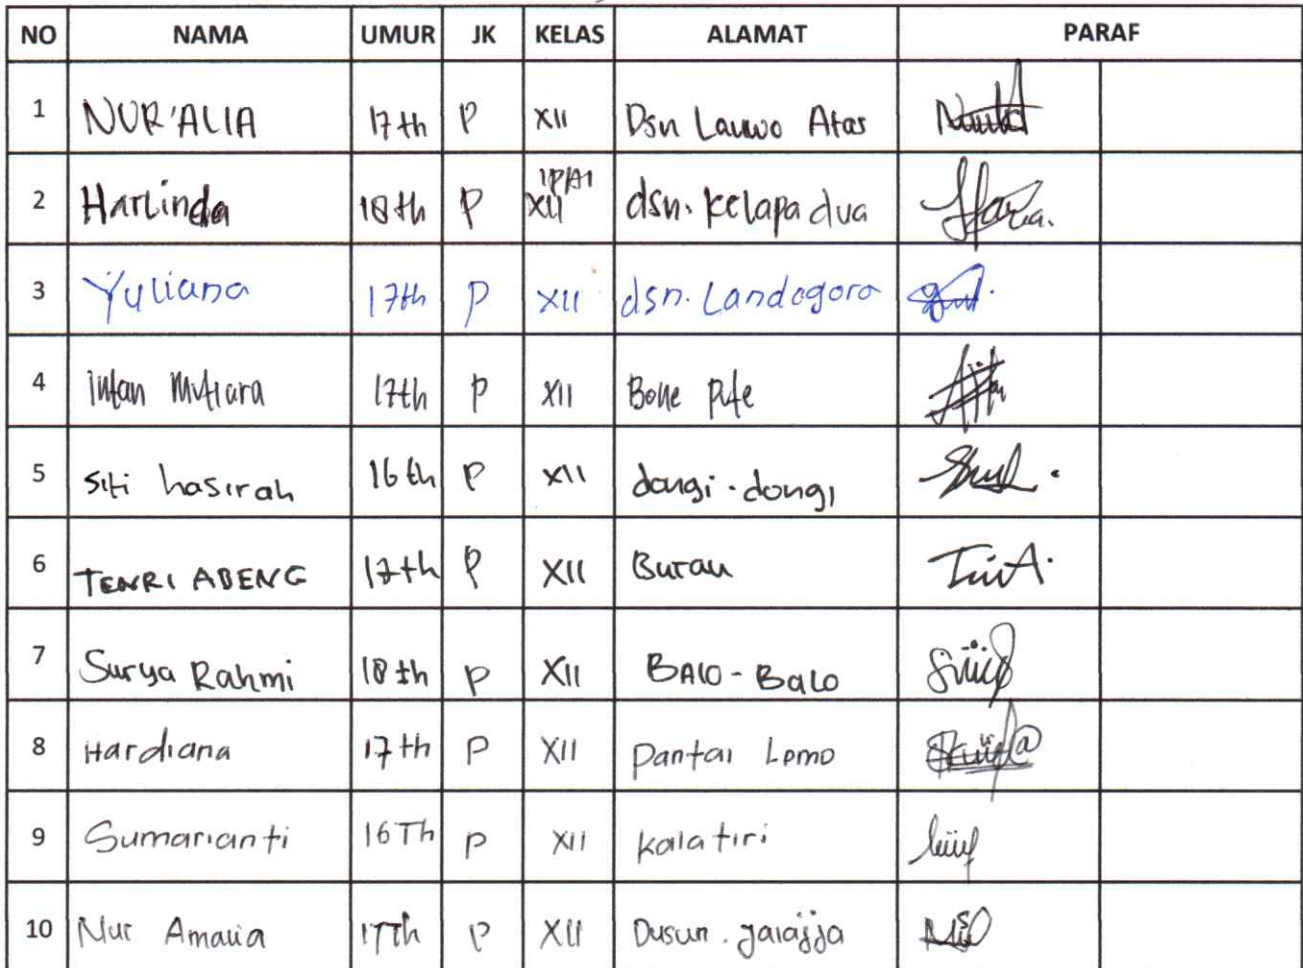 NO NAMA UMUR JK KELAS ALAMAT PARAF
1 NUR'ALIA 17th P XII Dsn Lauwo Atas
2 Harlinda 18th P XII IPA1 dsn. kelapa dua
3 Yuliana 17th P XII dsn. Landogoro
4 Intan Mutiara 17th P XII Bone Pute
5 Siti hasirah 16th P XII dongi-dongi
6 TENRI ABENG 17th P XII Burau
7 Surya Rahmi 18th P XII BALO-BaLO
8 Hardiana 17th P XII Pantai Lemo
9 Sumarianti 16Th P XII kalatiri
10 Nur Amalia 17Th P XII Dusun.